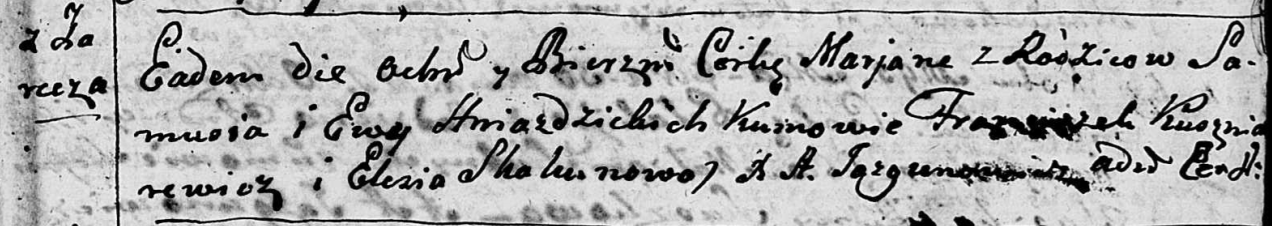 z Za
recza
Eadem die ochŕ y Bierzm̃ Corkę Marjanę z Rodzicow Sa-
musia i Ewy Hniazdzickich Kumowie Franciszek Kusznia
rewicz i Elezia Skakunowa X A.